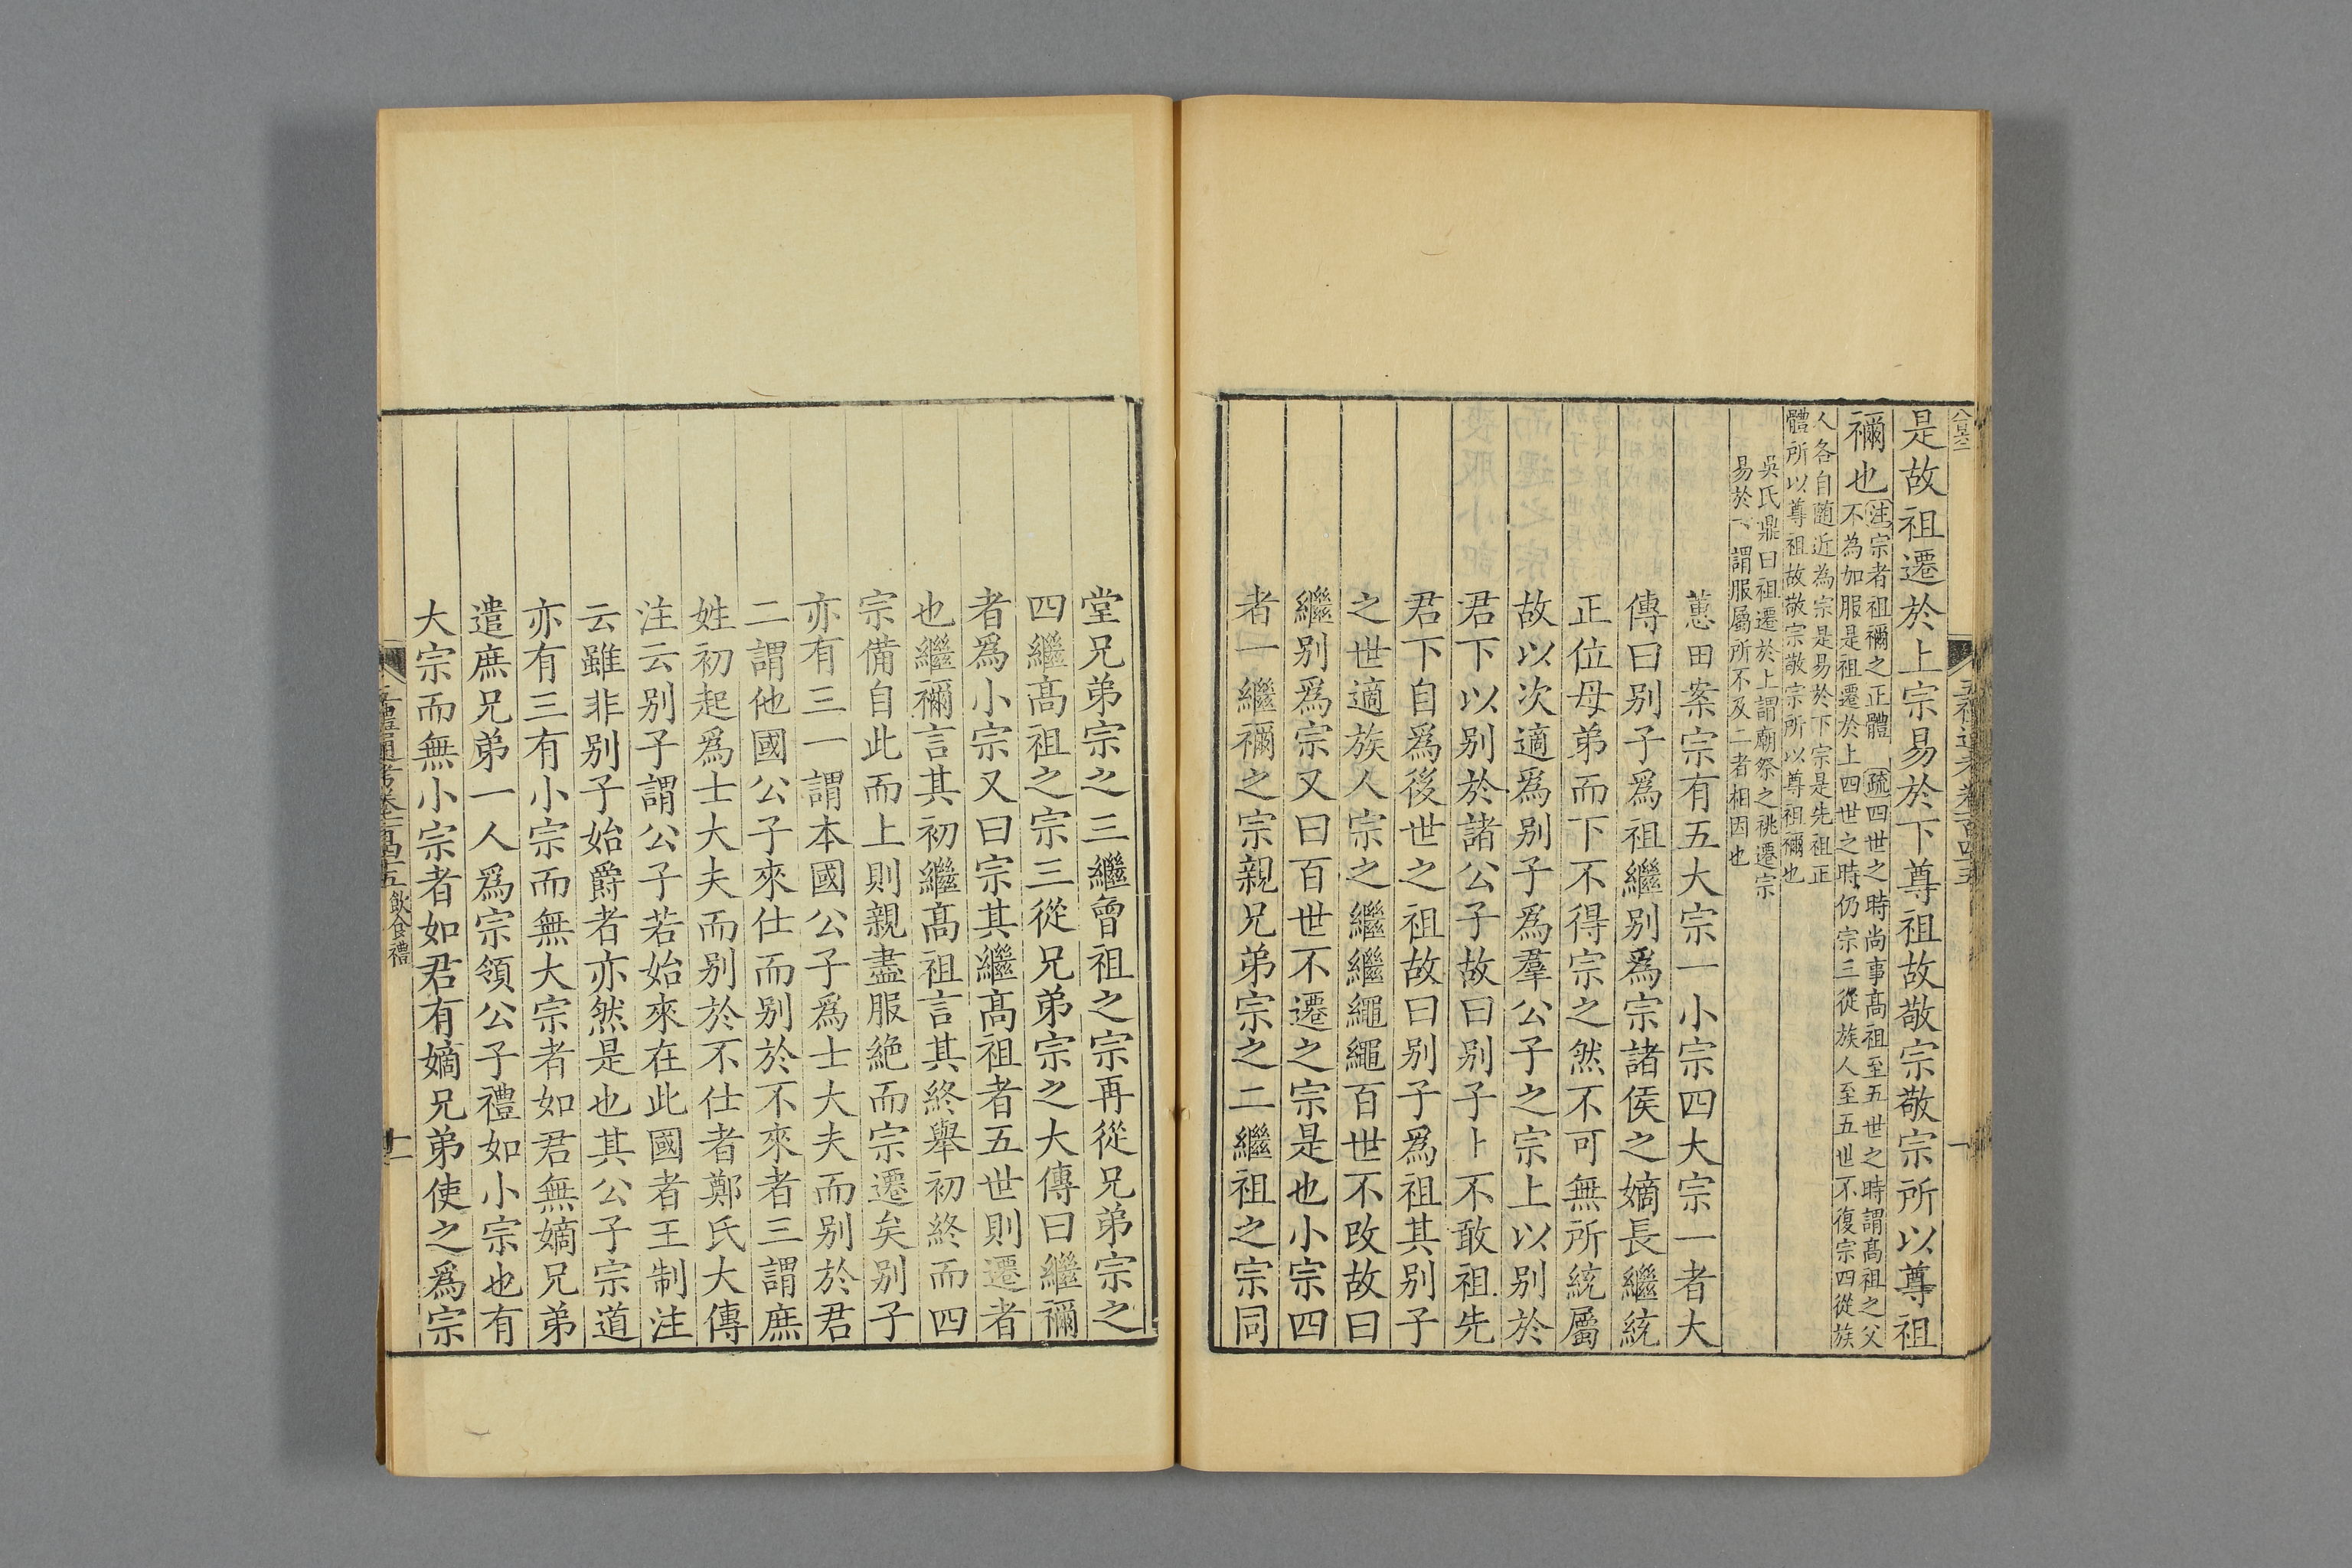 是故祖遷於上宗易於下尊祖故敬宗敬宗所以尊祖
禰也
注宗者祖禰之正體 疏四世之時尚事髙祖至五世之時謂髙祖之父
不為加服是祖遷於上四世之時仍宗三從族人至五世不復宗四從族
人各自隨近為宗是易於下宗是先祖正
體所以尊祖故敬宗敬宗所以尊祖禰也
吳氏鼎曰祖遷於上謂廟祭之祧遷宗
易於下謂服屬所不及二者相因也
蕙田案宗有五大宗一小宗四大宗一者大
傳曰别子爲祖繼别爲宗諸侯之嫡長繼統
正位母弟而下不得宗之然不可無所統屬
故以次適爲别子爲羣公子之宗上以别於
君下以别於諸公子故曰别子上不敢祖先
君下自爲後世之祖故曰别子爲祖其别子
之世適族人宗之繼繼繩繩百世不改故曰
繼别爲宗又曰百世不遷之宗是也小宗四
者一繼禰之宗親兄弟宗之二繼祖之宗同
堂兄弟宗之三繼曾祖之宗再從兄弟宗之
四繼髙祖之宗三從兄弟宗之大傳曰繼禰
者爲小宗又曰宗其繼髙祖者五世則遷者
也繼禰言其初繼髙祖言其終舉初終而四
宗備自此而上則親盡服絶而宗遷矣别子
亦有三一謂本國公子爲士大夫而别於君
二謂他國公子來仕而别於不來者三謂庶
姓初起爲士大夫而别於不仕者鄭氏大傳
注云别子謂公子若始來在此國者王制注
云雖非别子始爵者亦然是也其公子宗道
亦有三有小宗而無大宗者如君無嫡兄弟
遣庶兄弟一人爲宗領公子禮如小宗也有
大宗而無小宗者如君有嫡兄弟使之爲宗
五禮通考卷一百四十五 飲食禮